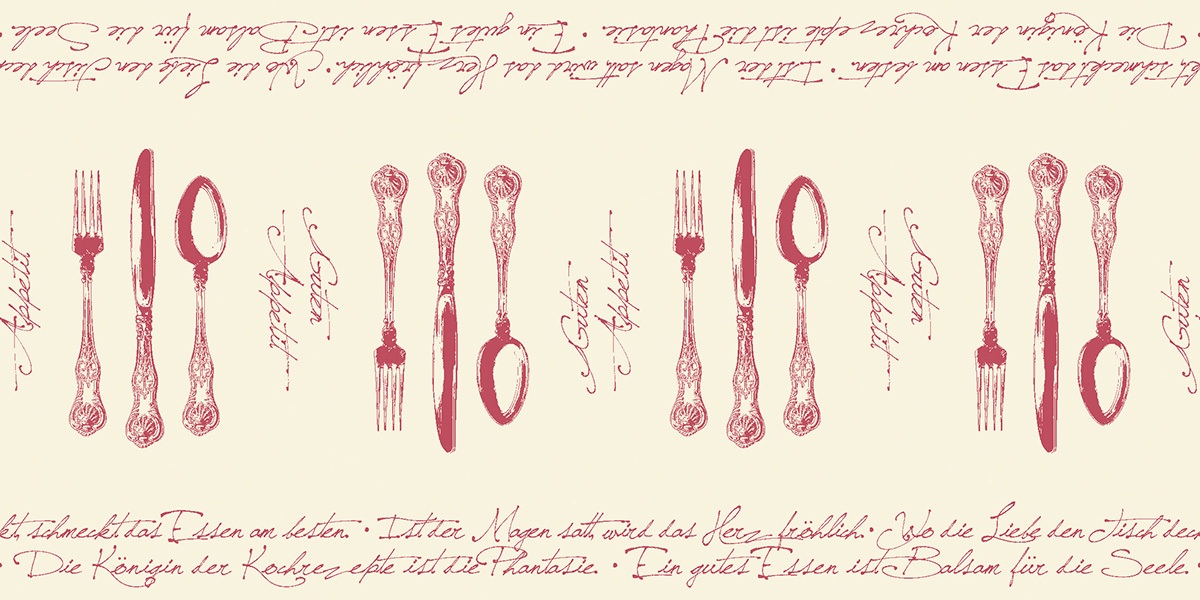 Die Königin der Kochrezepte ist die Phantasie. • Ein gutes Essen ist Balsam für die Seele.
kt, schmeckt das Essen am besten. • Ist der Magen satt, wird das Herz fröhlich. • Wo die Liebe den Tisch deck
Appetit
Guten
Appetit
Guten
Appetit
Guten
Appetit
Guten
kt, schmeckt das Essen am besten. • Ist der Magen satt, wird das Herz fröhlich. • Wo die Liebe den Tisch deck
• Die Königin der Kochrezepte ist die Phantasie. • Ein gutes Essen ist Balsam für die Seele. •